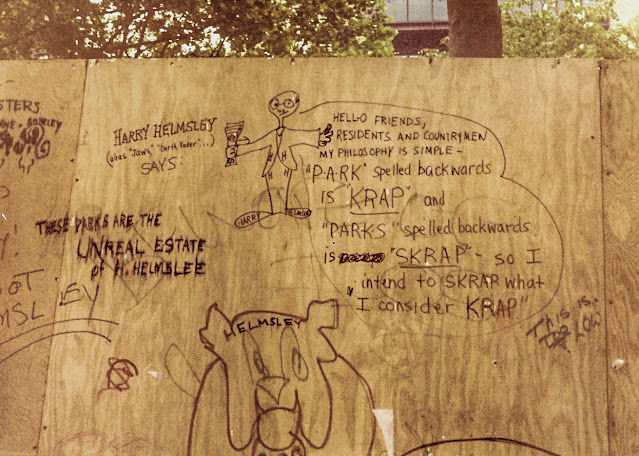 HARRY HELMSLEY
(alias "Jaws," "Darth Vader"...)
SAYS:
HELLO FRIENDS,
RESIDENTS AND COUNTRYMEN
MY PHILOSOPHY IS SIMPLE -
"PARK" spelled backwards
IS "KRAP" and
"PARKS" spelled backwards
IS "SKRAP" - so I
intend to SKRAP what
I consider KRAP"
H H
H H
HARRY HELMSLEY
THESE PARKS ARE THE
UNREAL ESTATE
OF H. HELMSLEE
HELMSLEY
THIS IS
TOO LOW
STERS